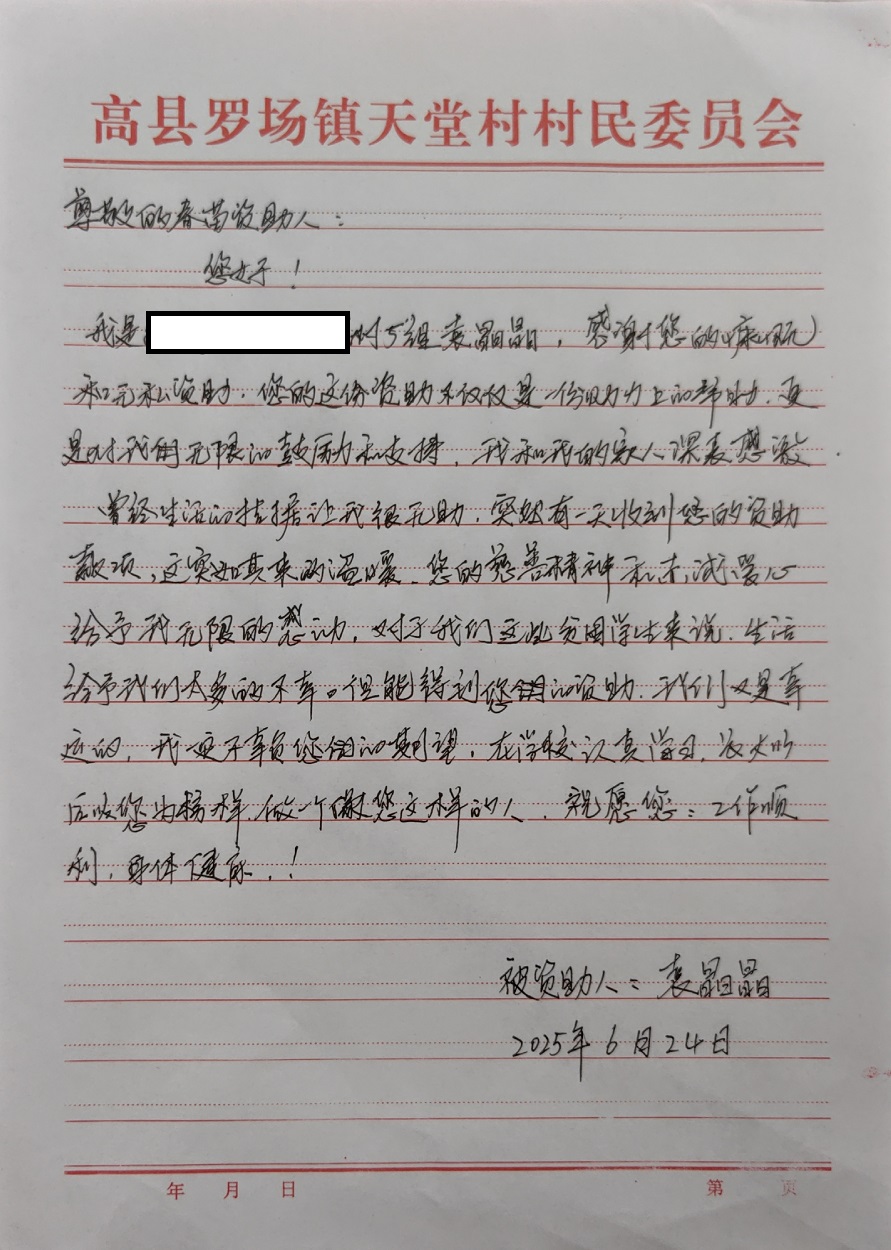 高县罗场镇天堂村村民委员会
尊敬的春苗资助人：
您好！
我是 村5组袁晶晶，感谢您的慷慨
和无私资助．您的这份资助不仅仅是一份财力上的帮助．更
是对我们无限的鼓励和支持．我和我的家人深表感激．
曾经生活的拮据让我很无助．突然有一天收到您的资助
款项，这突如其来的温暖．您的慈善精神和真诚爱心
给予我无限的感动，对于我们这些贫困学生来说．生活
给予我们太多的不幸。但能得到您们的资助．我们又是幸
运的，我更不辜负您们的期望，在学校认真学习，长大以
后以您为榜样．做一个像您这样的人．祝愿您：工作顺
利，身体健康．！
被资助人：袁晶晶
2025年6月24日
年 月 日 第 页